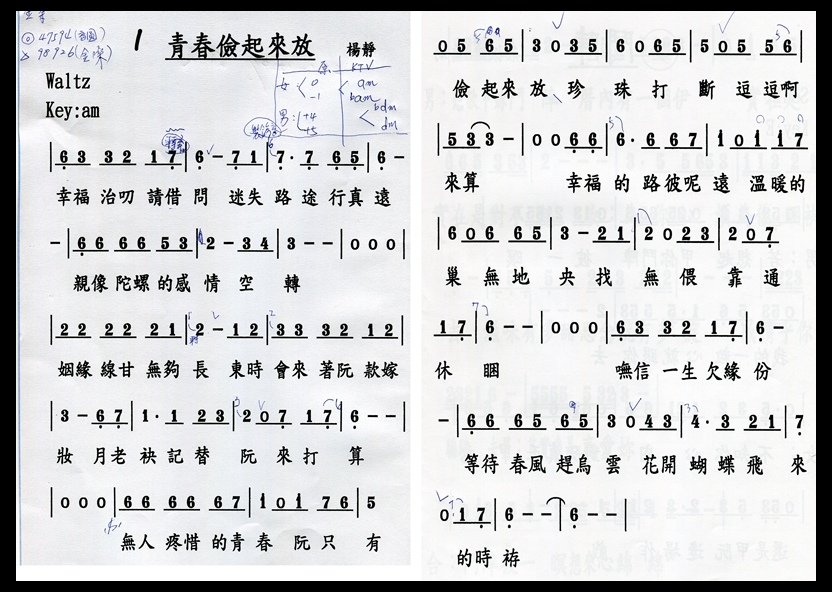 ◎47594(音圓)
△98926(金嗓)
1 青春儉起來放 楊靜
原 KTV
女 0 am
-1 bam
男: +4 bdm
+5 dm
Waltz
Key:am
63 32 17|6 - 71|7·7 65|6 -
幸福 治叨 請借 問 迷失 路 途 行真 遠
-|66 66 53|2 - 34|3 - -|0 0 0|
親像 陀螺 的感 情 空 轉
|22 22 21|2 - 12|33 32 12|
姻緣 線甘 無夠 長 東時 會來 著阮 款嫁
|3 - 67|1·1 23|2 07 17|6 - -|
妝 月老 袂記 替 阮 來打 算
|0 0 0|66 66 67|10 1 76|5
無人 疼惜 的青春 阮只 有
05 65|30 35|60 65|505 56|
儉 起來 放 珍 珠 打 斷 逗 逗啊
|533 -|00 66|6·6 67|10 1 17|
來算 幸福 的 路彼呢 遠 溫暖的
|606 65|3 - 21|20 23|2 07|
巢 無地 央 找 無 偎 靠 通
17|6 - -|0 0 0|63 32 17|6 -
休 睏 嘸信 一生 欠緣 份
-|66 65 65|30 43|4·3 21|7
等待 春風 趕烏 雲 花開 蝴 蝶飛 來
0 17|6 - -|6 - -|
的時 袸